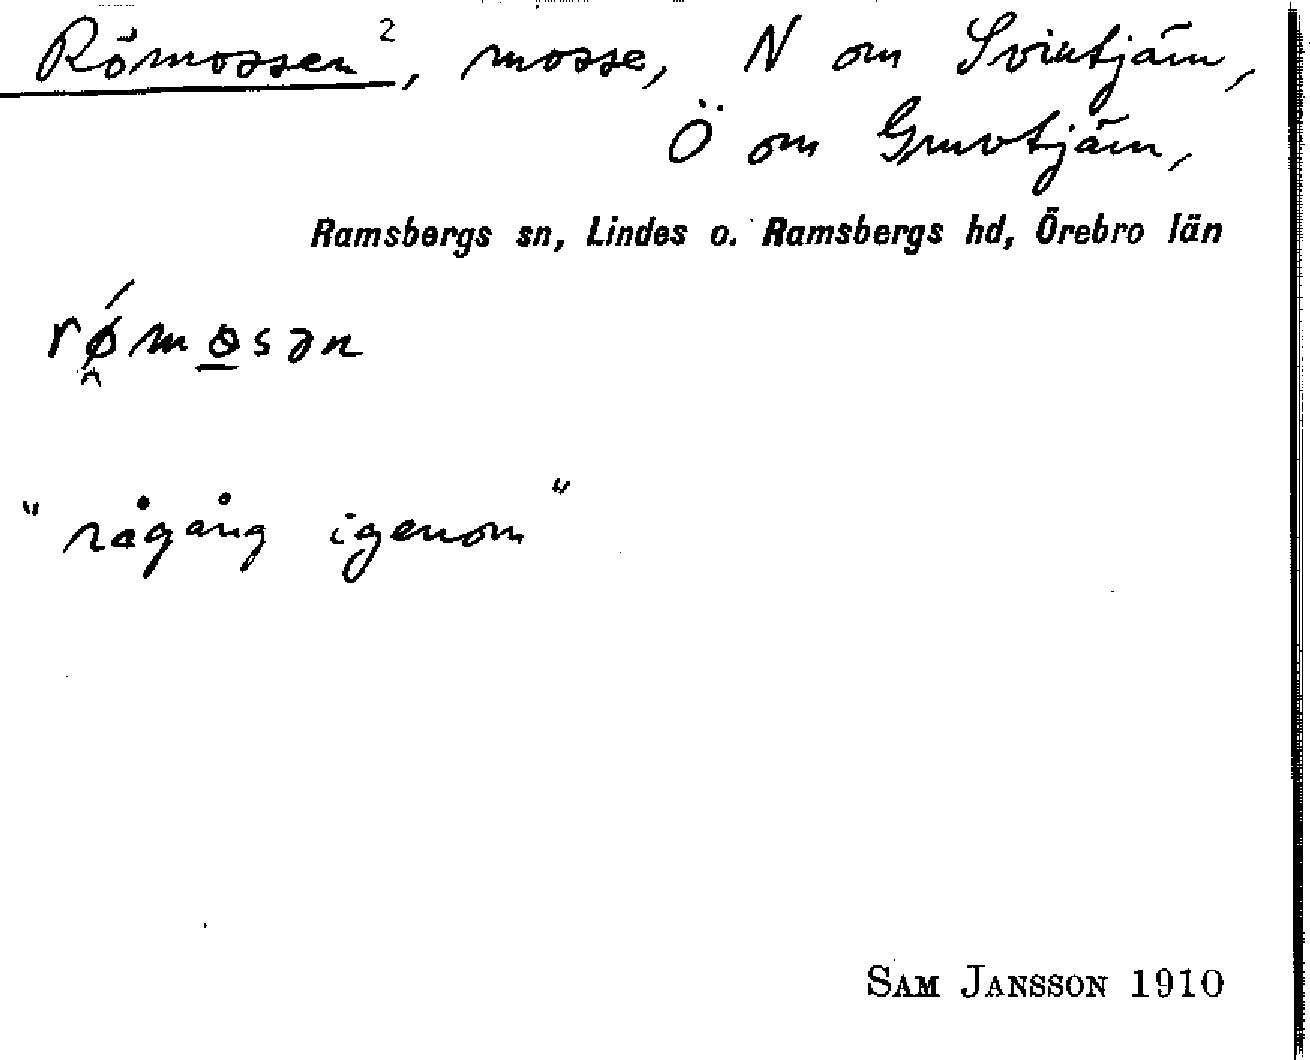 Römossen ², mosse, N om Svintjärn,
Ö om Gruvtjärn,
Ramsbergs sn, Lindes o. Ramsbergs hd, Örebro län
rǿmɵsən
"rågång igenom"
SAM JANSSON 1910